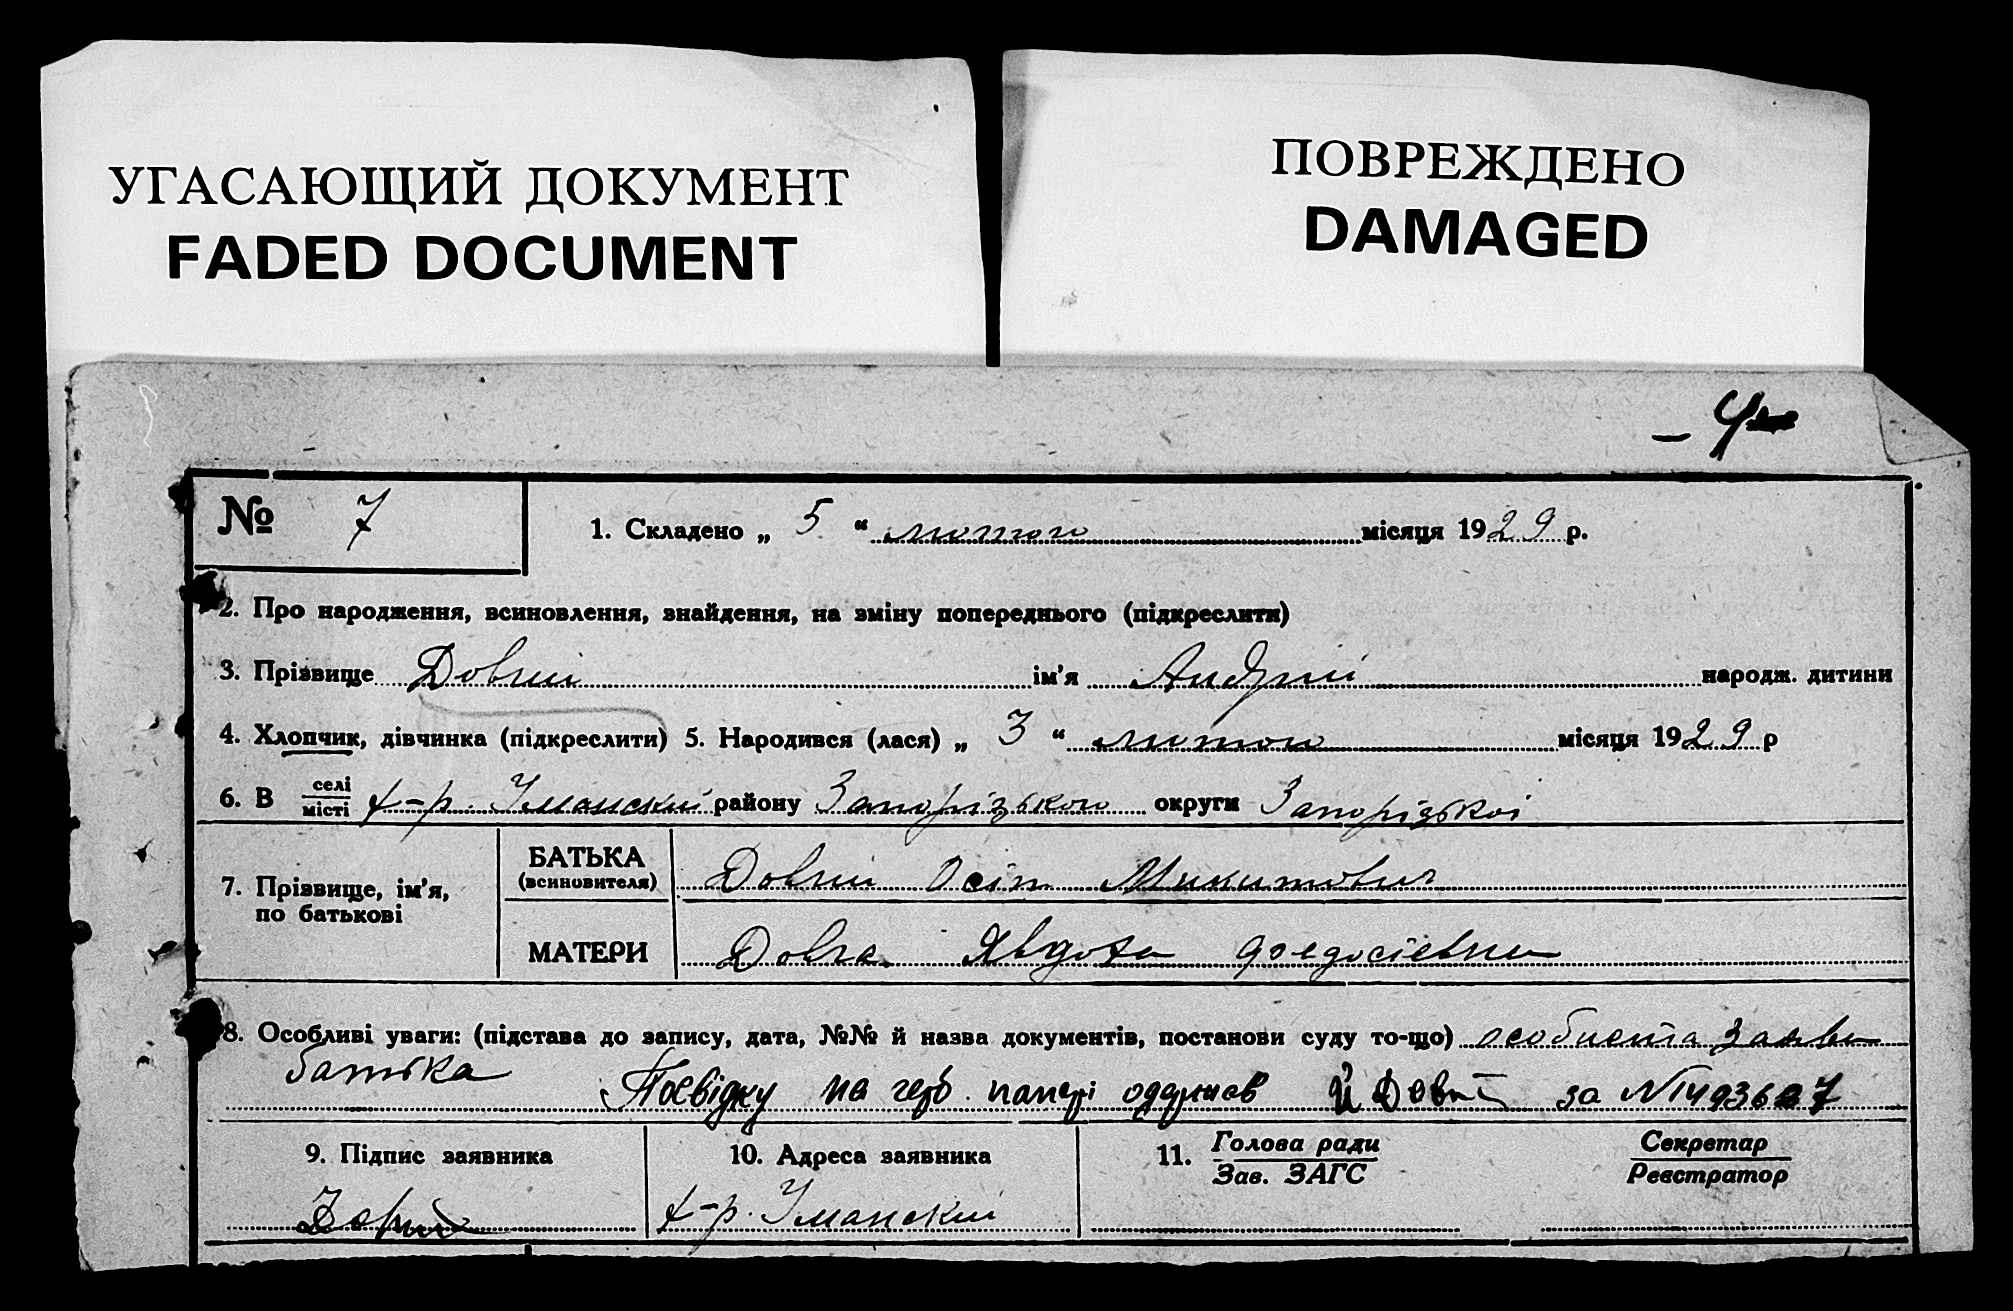 УГАСАЮЩИЙ ДОКУМЕНТ
FADED DOCUMENT
ПОВРЕЖДЕНО
DAMAGED
№ 7
1. Складено „ 5 “ лютого місяця 1929 р.
2. Про народження, всиновлення, знайдення, на зміну попереднього (підкреслити)
3. Прізвище Довгий ім'я Андрій народж. дитини
4. Хлопчик, дівчинка (підкреслити) 5. Народився (лася) „ 3 “ лютого місяця 1929 р
6. В селі/місті х-р. Уманский району Запорізького округи Запорізькоі
7. Прізвище, ім'я, по батькові
БАТЬКА (всиновителя) Довгий Осіп Микитович
МАТЕРИ Довга Явдоха Федосієвна
8. Особливі уваги: (підстава до запису, дата, №№ й назва документів, постанови суду то-що) особиста заява
батька Посвідку на герб. папері одержав Й Довгий за №
9. Підпис заявника
10. Адреса заявника
11. Голова ради/Зав. ЗАГС
Секретар/Реєстратор
Довгий
х-р. Уманский